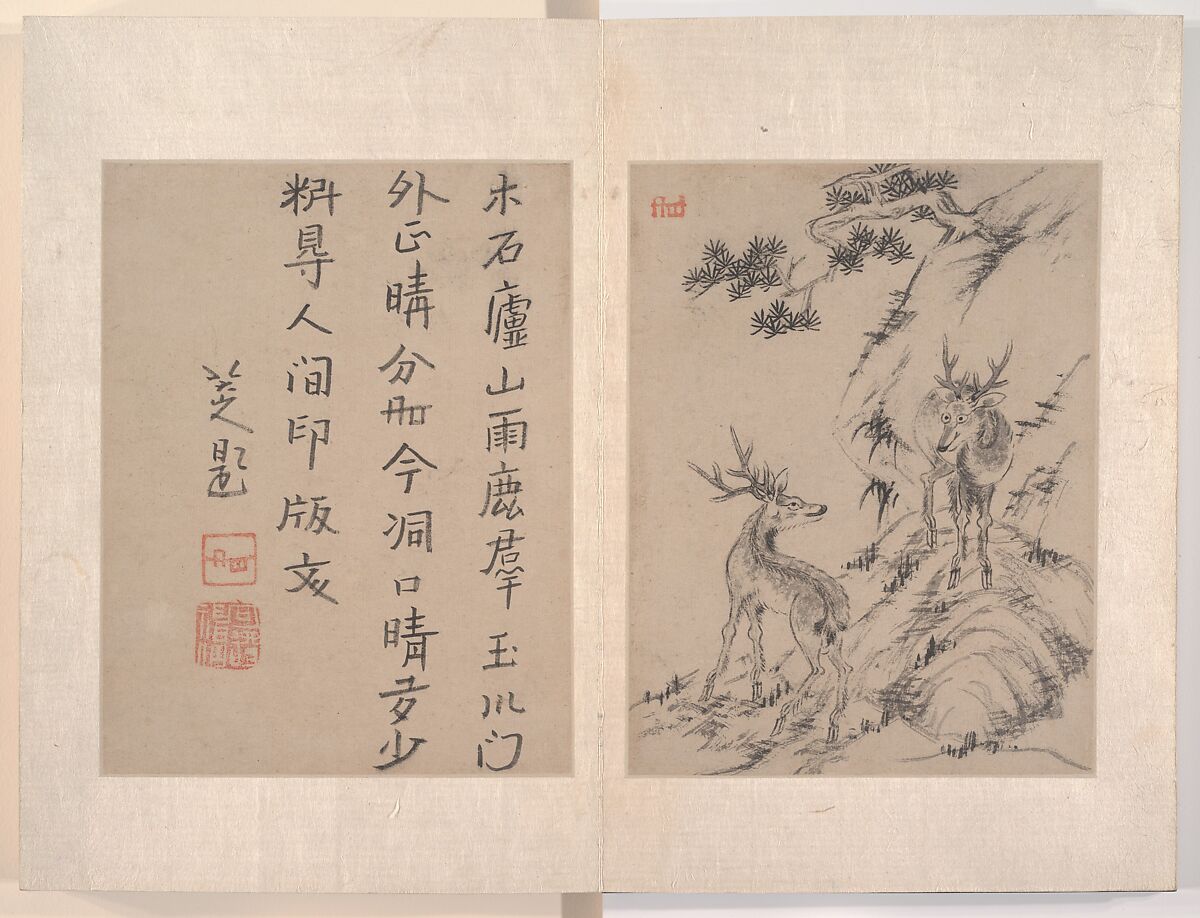 木石廬山雨鹿羣玉川门
外正晴分而今洞口晴多少
料㝵人间印版文
八大題